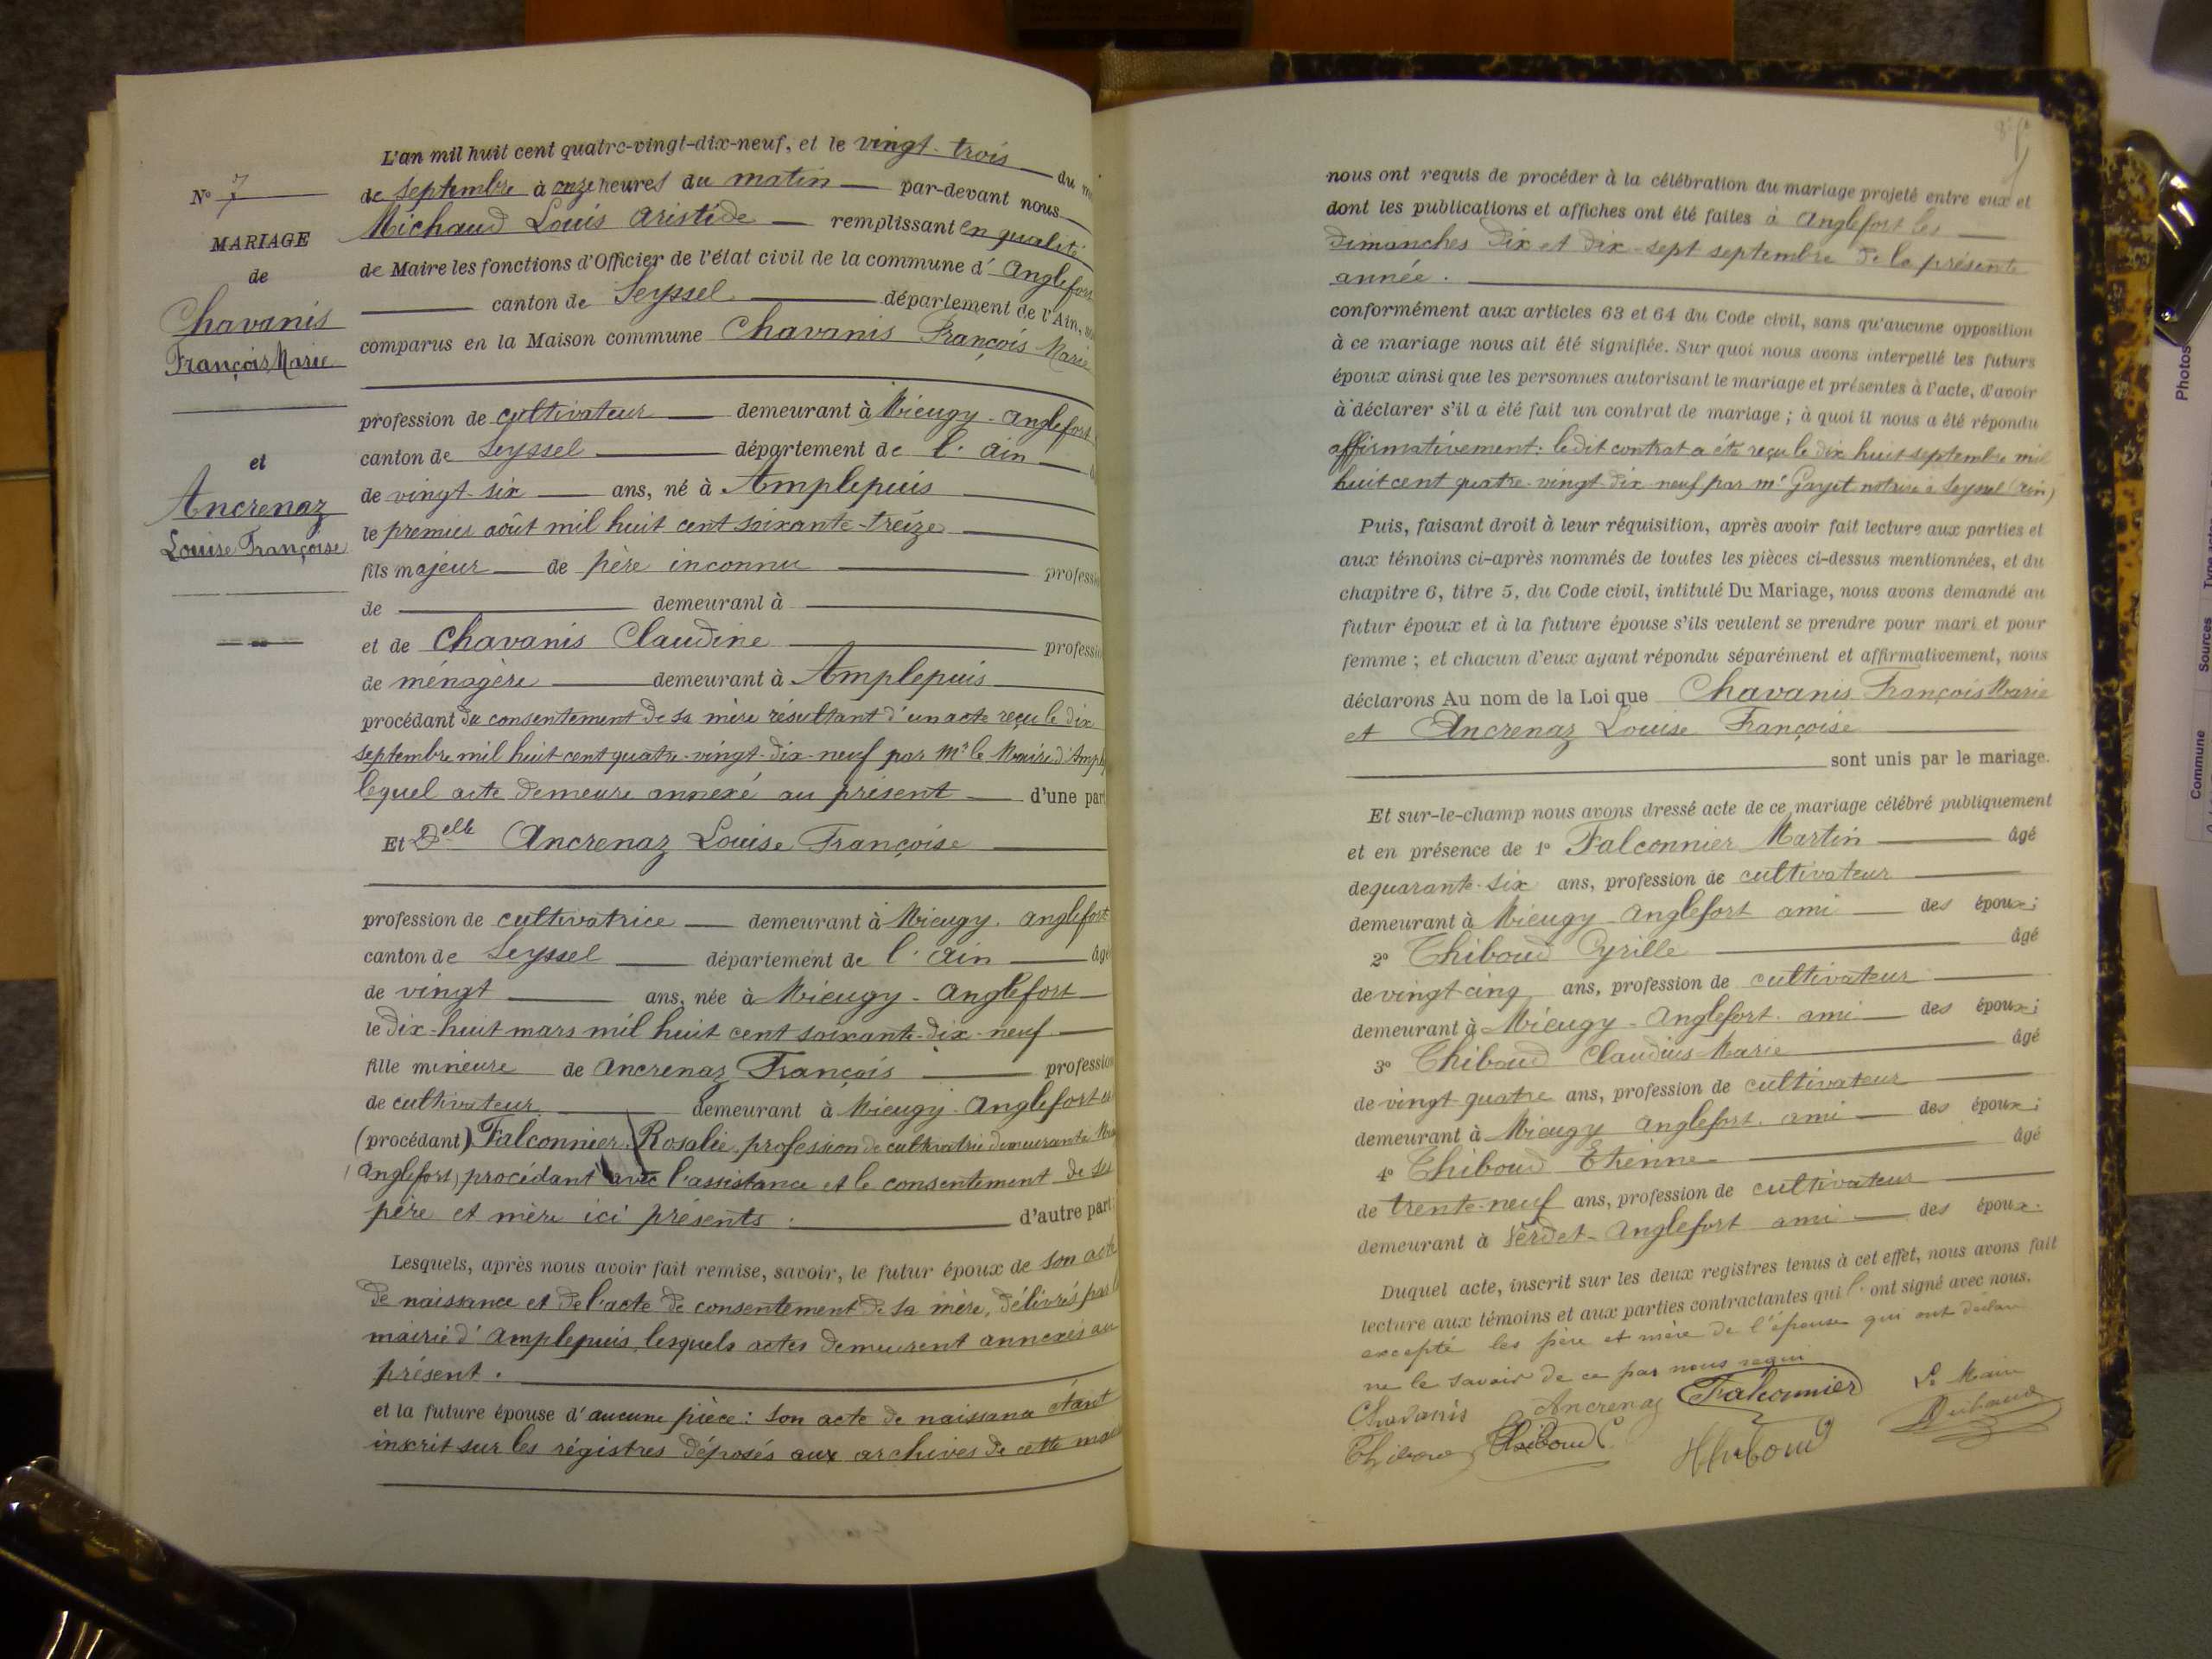 N° 7
MARIAGE
de
Chavanis
François Marie
et
Ancrenaz
Louise Françoise
L'an mil huit cent quatre-vingt-dix-neuf, et le vingt-trois du
de septembre à onze heures du matin par-devant nous
Michaud Louis Aristide remplissant en qualité
de Maire les fonctions d'Officier de l'état civil de la commune d' Anglefort
canton de Seyssel département de l'Ain,
comparus en la Maison commune Chavanis François Marie
profession de cultivateur demeurant à Mieugy-Anglefort
canton de Seyssel département de l'Ain
de vingt-six ans, né à Amplepuis
le premier août mil huit cent soixante-treize
fils majeur de père inconnu profession
de demeurant à
et de Chavanis Claudine profession
de ménagère demeurant à Amplepuis
procédant du consentement de sa mère résultant d'un acte reçu le dix
septembre mil huit cent quatre-vingt-dix-neuf par Mr le Maire d'Ampl
lequel acte demeure annexé au présent d'une part
Et Delle Ancrenaz Louise Françoise
profession de cultivatrice demeurant à Mieugy. Anglefort
canton de Seyssel département de l'Ain âgé
de vingt ans, née à Mieugy-Anglefort
le dix-huit mars mil huit cent soixante-dix-neuf
fille mineure de Ancrenaz François profession
de cultivateur demeurant à Mieugy-Anglefort et
(procédant) Falconnier Rosalie, profession de cultivatrice demeurant à
Anglefort, procédant avec l'assistance et le consentement de ses
père et mère ici présents. d'autre part;
Lesquels, après nous avoir fait remise, savoir, le futur époux de son acte
de naissance et de l'acte de consentement de sa mère, délivrés par la
mairie d'Amplepuis, lesquels actes demeurent annexés au
présent.
et la future épouse d'aucune pièce: son acte de naissance étant
inscrit sur les régistres déposés aux archives de cette
nous ont requis de procéder à la célébration du mariage projeté entre eux et
dont les publications et affiches ont été faites à Anglefort les
dimanches dix et dix-sept septembre de la présente
année.
conformément aux articles 63 et 64 du Code civil, sans qu'aucune opposition
à ce mariage nous ait été signifiée. Sur quoi nous avons interpellé les futurs
époux ainsi que les personnes autorisant le mariage et présentes à l'acte, d'avoir
à déclarer s'il a été fait un contrat de mariage; à quoi il nous a été répondu
affirmativement: ledit contrat a été reçu le dix huit septembre mil
huit cent quatre-vingt-dix-neuf par me notaire à Seyssel (Ain)
Puis, faisant droit à leur réquisition, après avoir fait lecture aux parties et
aux témoins ci-après nommés de toutes les pièces ci-dessus mentionnées, et du
chapitre 6, titre 5, du Code civil, intitulé Du Mariage, nous avons demandé au
futur époux et à la future épouse s'ils veulent se prendre pour mari et pour
femme; et chacun d'eux ayant répondu séparément et affirmativement, nous
déclarons Au nom de la Loi que Chavanis François Marie
et Ancrenaz Louise Françoise
sont unis par le mariage.
Et sur-le-champ nous avons dressé acte de ce mariage célébré publiquement
et en présence de 1° Falconnier Martin âgé
de quarante-six ans, profession de cultivateur
demeurant à Mieugy-Anglefort ami des époux;
2° Thiboud Cyrille âgé
de vingt cinq ans, profession de cultivateur
demeurant à Mieugy-Anglefort. ami des époux;
3° Thiboud Claudius-Marie âgé
de vingt-quatre ans, profession de cultivateur
demeurant à Mieugy Anglefort. ami des époux;
4° Thiboud Etienne âgé
de trente-neuf ans, profession de cultivateur
demeurant à Verdet-Anglefort ami des époux.
Duquel acte, inscrit sur les deux registres tenus à cet effet, nous avons fait
lecture aux témoins et aux parties contractantes qui l'ont signé avec nous.
excepté les père et mère de l'épouse qui ont déclaré
ne le savoir de ce par nous requi
Chavanis Ancrenaz Falconnier Le Maire
Thiboud Thiboud C Thiboud
Photos
Sources
Commune